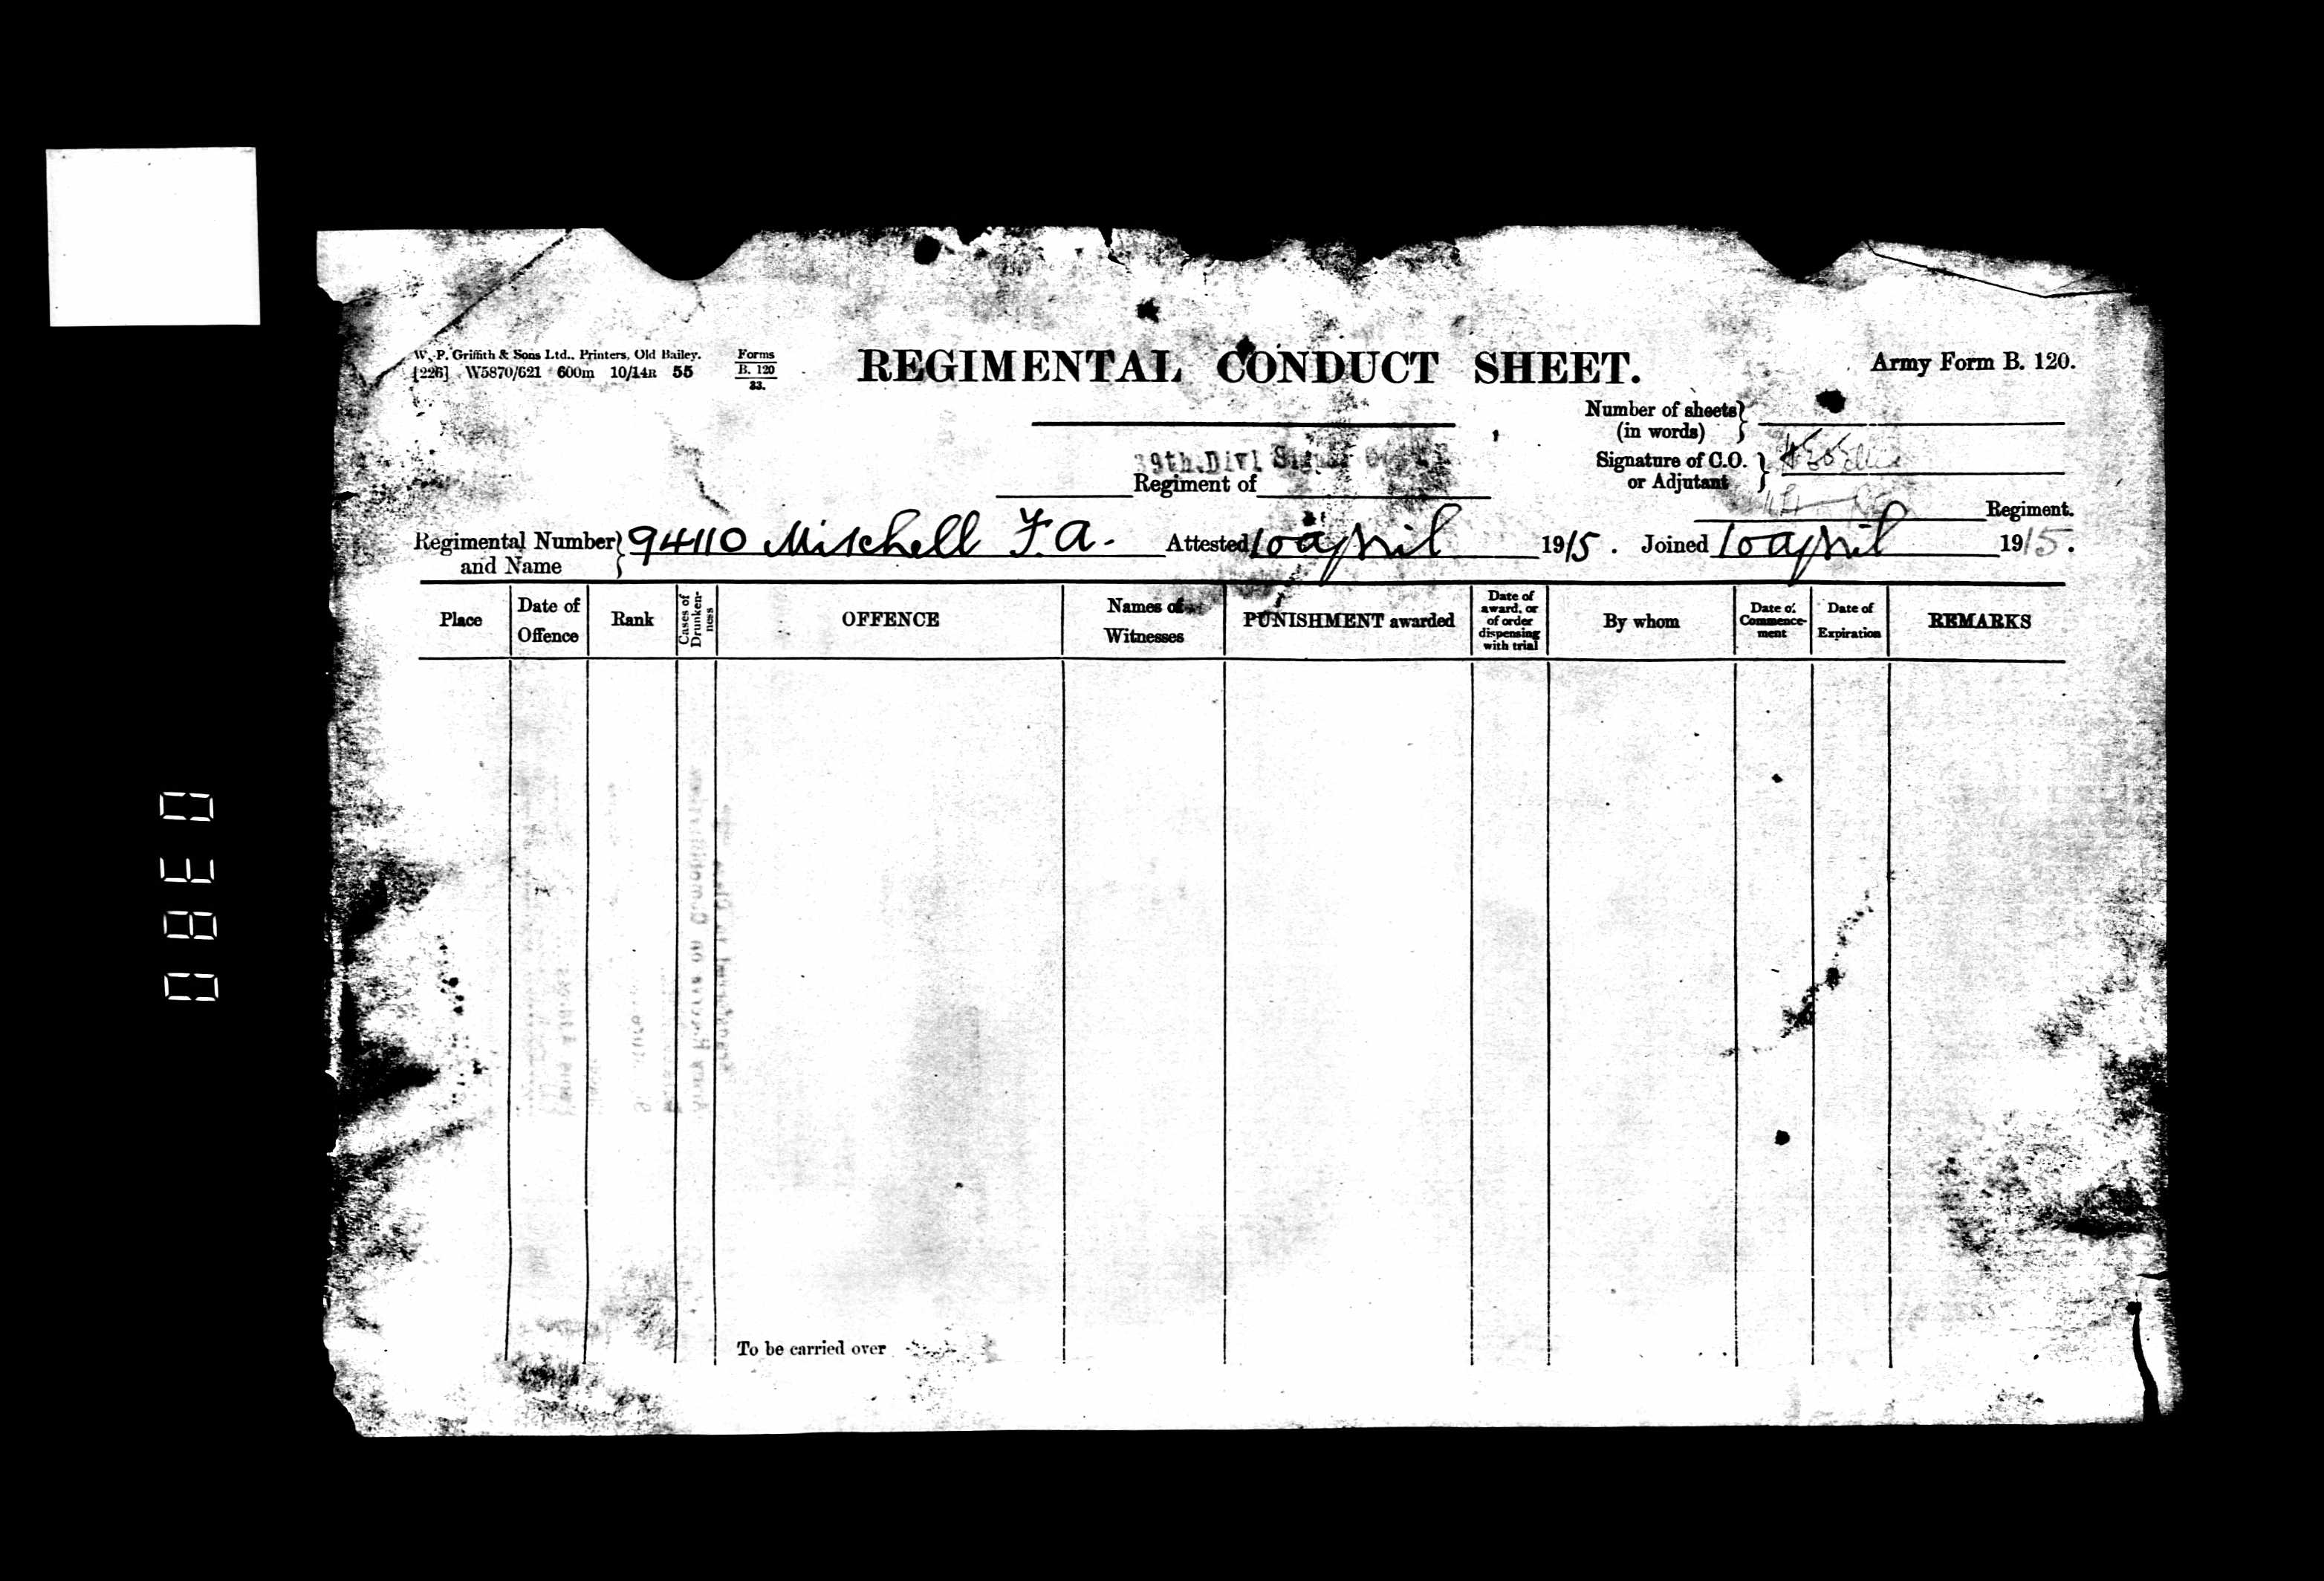 W. P. Griffith & Sons Ltd., Printers, Old Bailey.
[226] W5870/621 600m 10/14R 55
Forms
B. 120
33.
REGIMENTAL CONDUCT SHEET.
Army Form B. 120.
Number of sheets
(in words)
9th. Divl
Regiment of
Signature of C.O.
or Adjutant
Regiment.
Regimental Number
and Name
94110 Mitchell F. A.
Attested 10 april 1915. Joined 10 april 1915.
Place
Date of
Offence
Rank
Cases of
Drunken-
ness
OFFENCE
Names of
Witnesses
PUNISHMENT awarded
Date of
award, or
of order
dispensing
with trial
By whom
Date of
Commence-
ment
Date of
Expiration
REMARKS
To be carried over